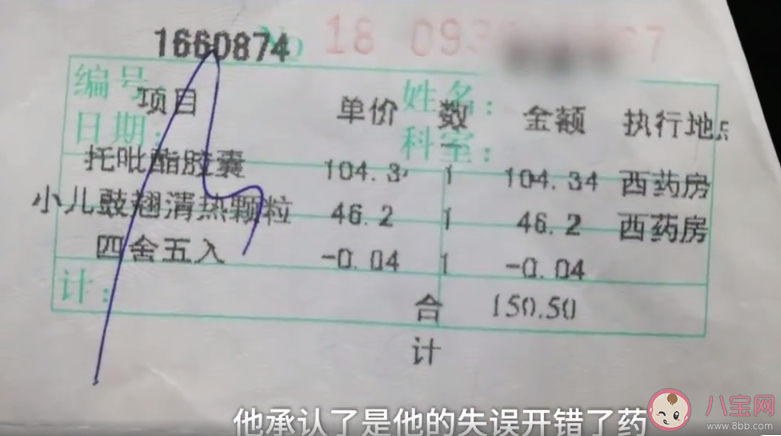 1660874
No 18 093
编号 姓名:
项目 单价 数 金额 执行地点
日期: 科室:
托吡酯胶囊 104.3 1 104.34 西药房
小儿豉翘清热颗粒 46.2 1 46.2 西药房
四舍五入 -0.04 1 -0.04
计: 合 150.50
计
他承认了是他的失误开错了药
八宝网
www.8bb.com